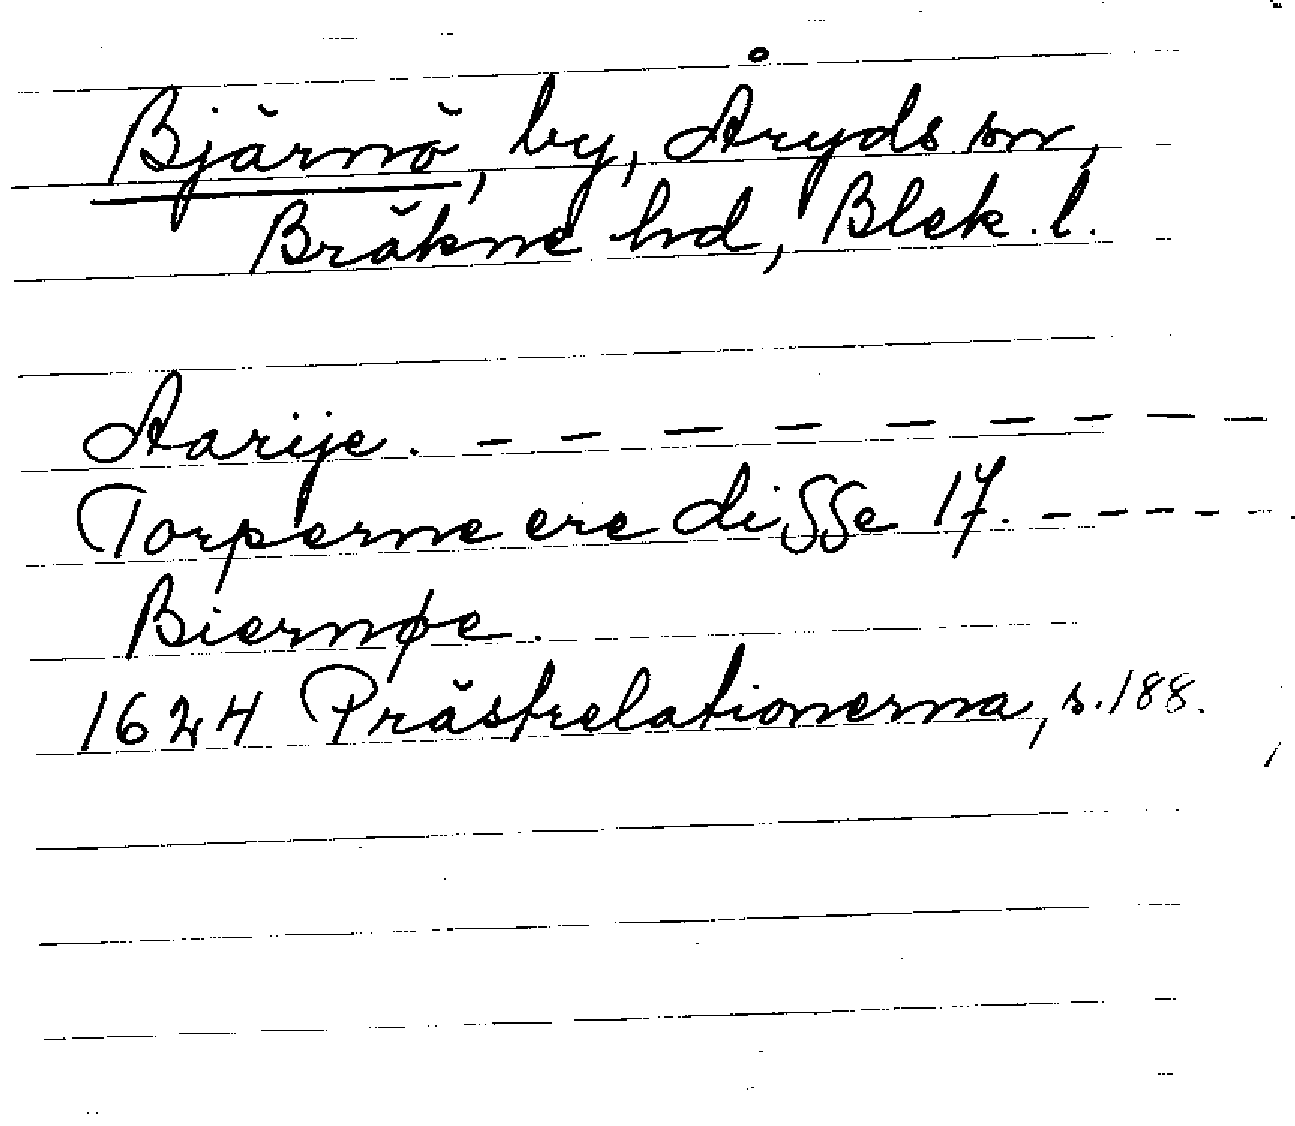 Bjärnö, by, Åryds sn,
Bräkne hd, Blek. l.
Aarije. - - - - - - - - -
Torperne ere disse 17. - - - - - -
Biernøe.
1624 Prästrelationerna, s. 188.